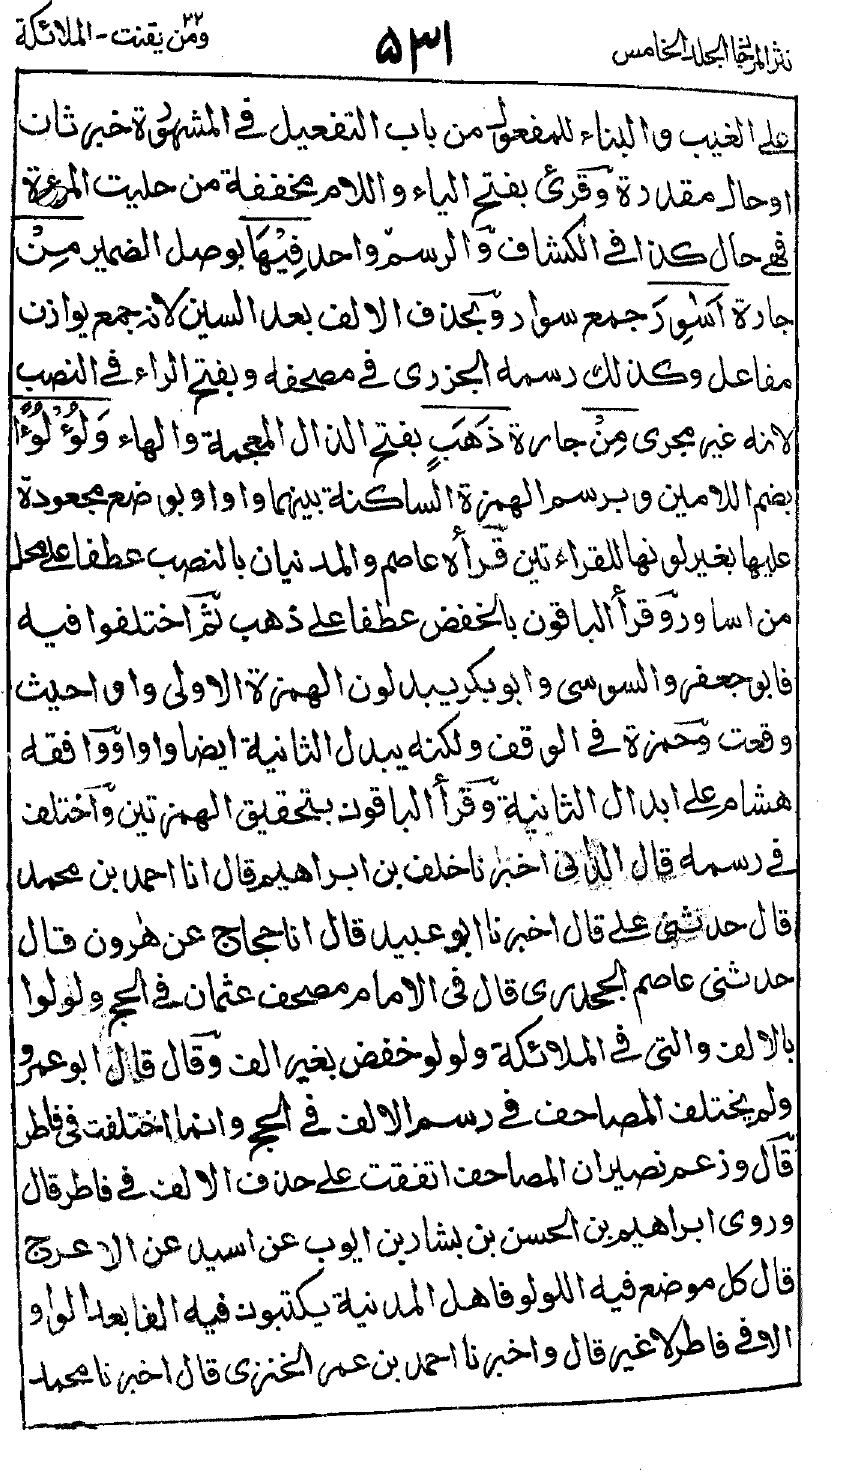 نثر المرجان المجلد الخامس
۵۳۱
ومن يقنت ۲۲ - الملائكة
على الغيب والبناء للمفعول من باب التفعيل في المشهورة خبر ثان
اوحال مقدرة وقرئ بفتح الياء واللام مخففة من حليت المرءة
فهي حال كذا في الكشاف والرسم واحد فِيْهَا بوصل الضمير مِنْ
جارة اَسَاوِرَ جمع سوار وبحذف الالف بعد السين لانه جمع يوازن
مفاعل وكذلك رسمه الجزري في مصحفه وبفتح الراء في النصب
لانه غير مجرى مِنْ جارة ذَهَبٍ بفتح الذال المعجمة والهاء وَلُؤْلُؤًا
بضم اللامين وبرسم الهمزة الساكنة بينهما واوا وبوضع مجعودة
عليها بغير لونها للقراءتين قرأه عاصم والمدنيان بالنصب عطفا على محل
من اساور وقرأ الباقون بالخفض عطفا على ذهب ثم اختلفوا فيه
فابو جعفر والسوسى وابو بكر يبدلون الهمزة الاولى واوا حيث
وقعت وحمزة في الوقف ولكنه يبدل الثانية ايضا واوا ووافقه
هشام على ابدال الثانية وقرأ الباقون بتحقيق الهمزتين واختلف
في رسمه قال الدانى اخبرنا خلف بن ابراهيم قال انا احمد بن محمد
قال حدثنى على قال اخبرنا ابو عبيد قال انا حجاج عن هرون قال
حدثنى عاصم الجحدرى قال فى الامام مصحف عثمان في الحج ولولوا
بالالف والتى في الملائكة ولولو خفض بغير الف وقال قال ابو عمرو
ولم يختلف المصاحف في رسم الالف في الحج وانما اختلفت فى فاطر
قال وزعم نصير ان المصاحف اتفقت على حذف الالف في فاطر قال
وروى ابراهيم بن الحسن بن بشار بن ايوب عن اسيد عن الاعرج
قال كل موضع فيه اللولو فاهل المدنية يكتبون فيه الفا بعد الواو
الا في فاطر لا غير قال واخبرنا احمد بن عمر الخنزى قال اخبرنا محمد